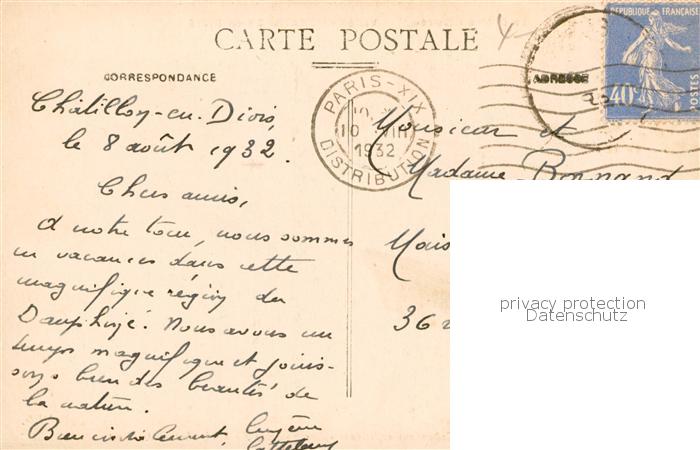 CARTE POSTALE
CORRESPONDANCE
ADRESSE
RÉPUBLIQUE FRANÇAISE
POSTES
40c
PARIS-XIX
10 VIII
1932
DISTRIBUTION
Châtillon-en-Diois,
le 8 août 1932.
Chers amis,
A notre tour, nous sommes
en vacances dans cette
magnifique région du
Dauphiné. Nous avons un
temps magnifique et jouis-
sons bien des beautés de
la nature.
Bien cordialement, Eugène
Monsieur et
Madame Bonnand
Mais
36
privacy protection
Datenschutz